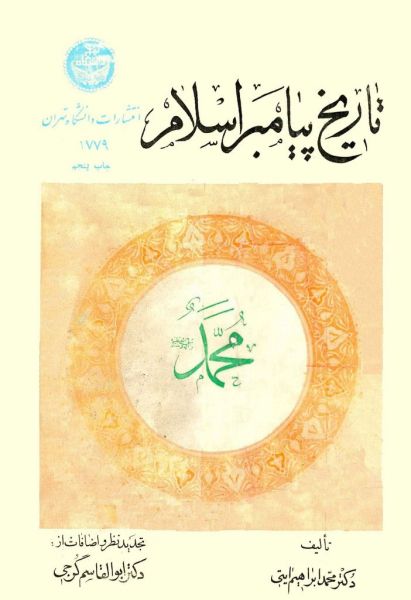 تاریخ پیامبر اسلام
انتشارات دانشگاه تهران
۱۷۷۹
چاپ پنجم
محمد
تألیف
دکتر محمد ابراهیم آیتی
تجدید نظر و اضافات از:
دکتر ابوالقاسم گرجی